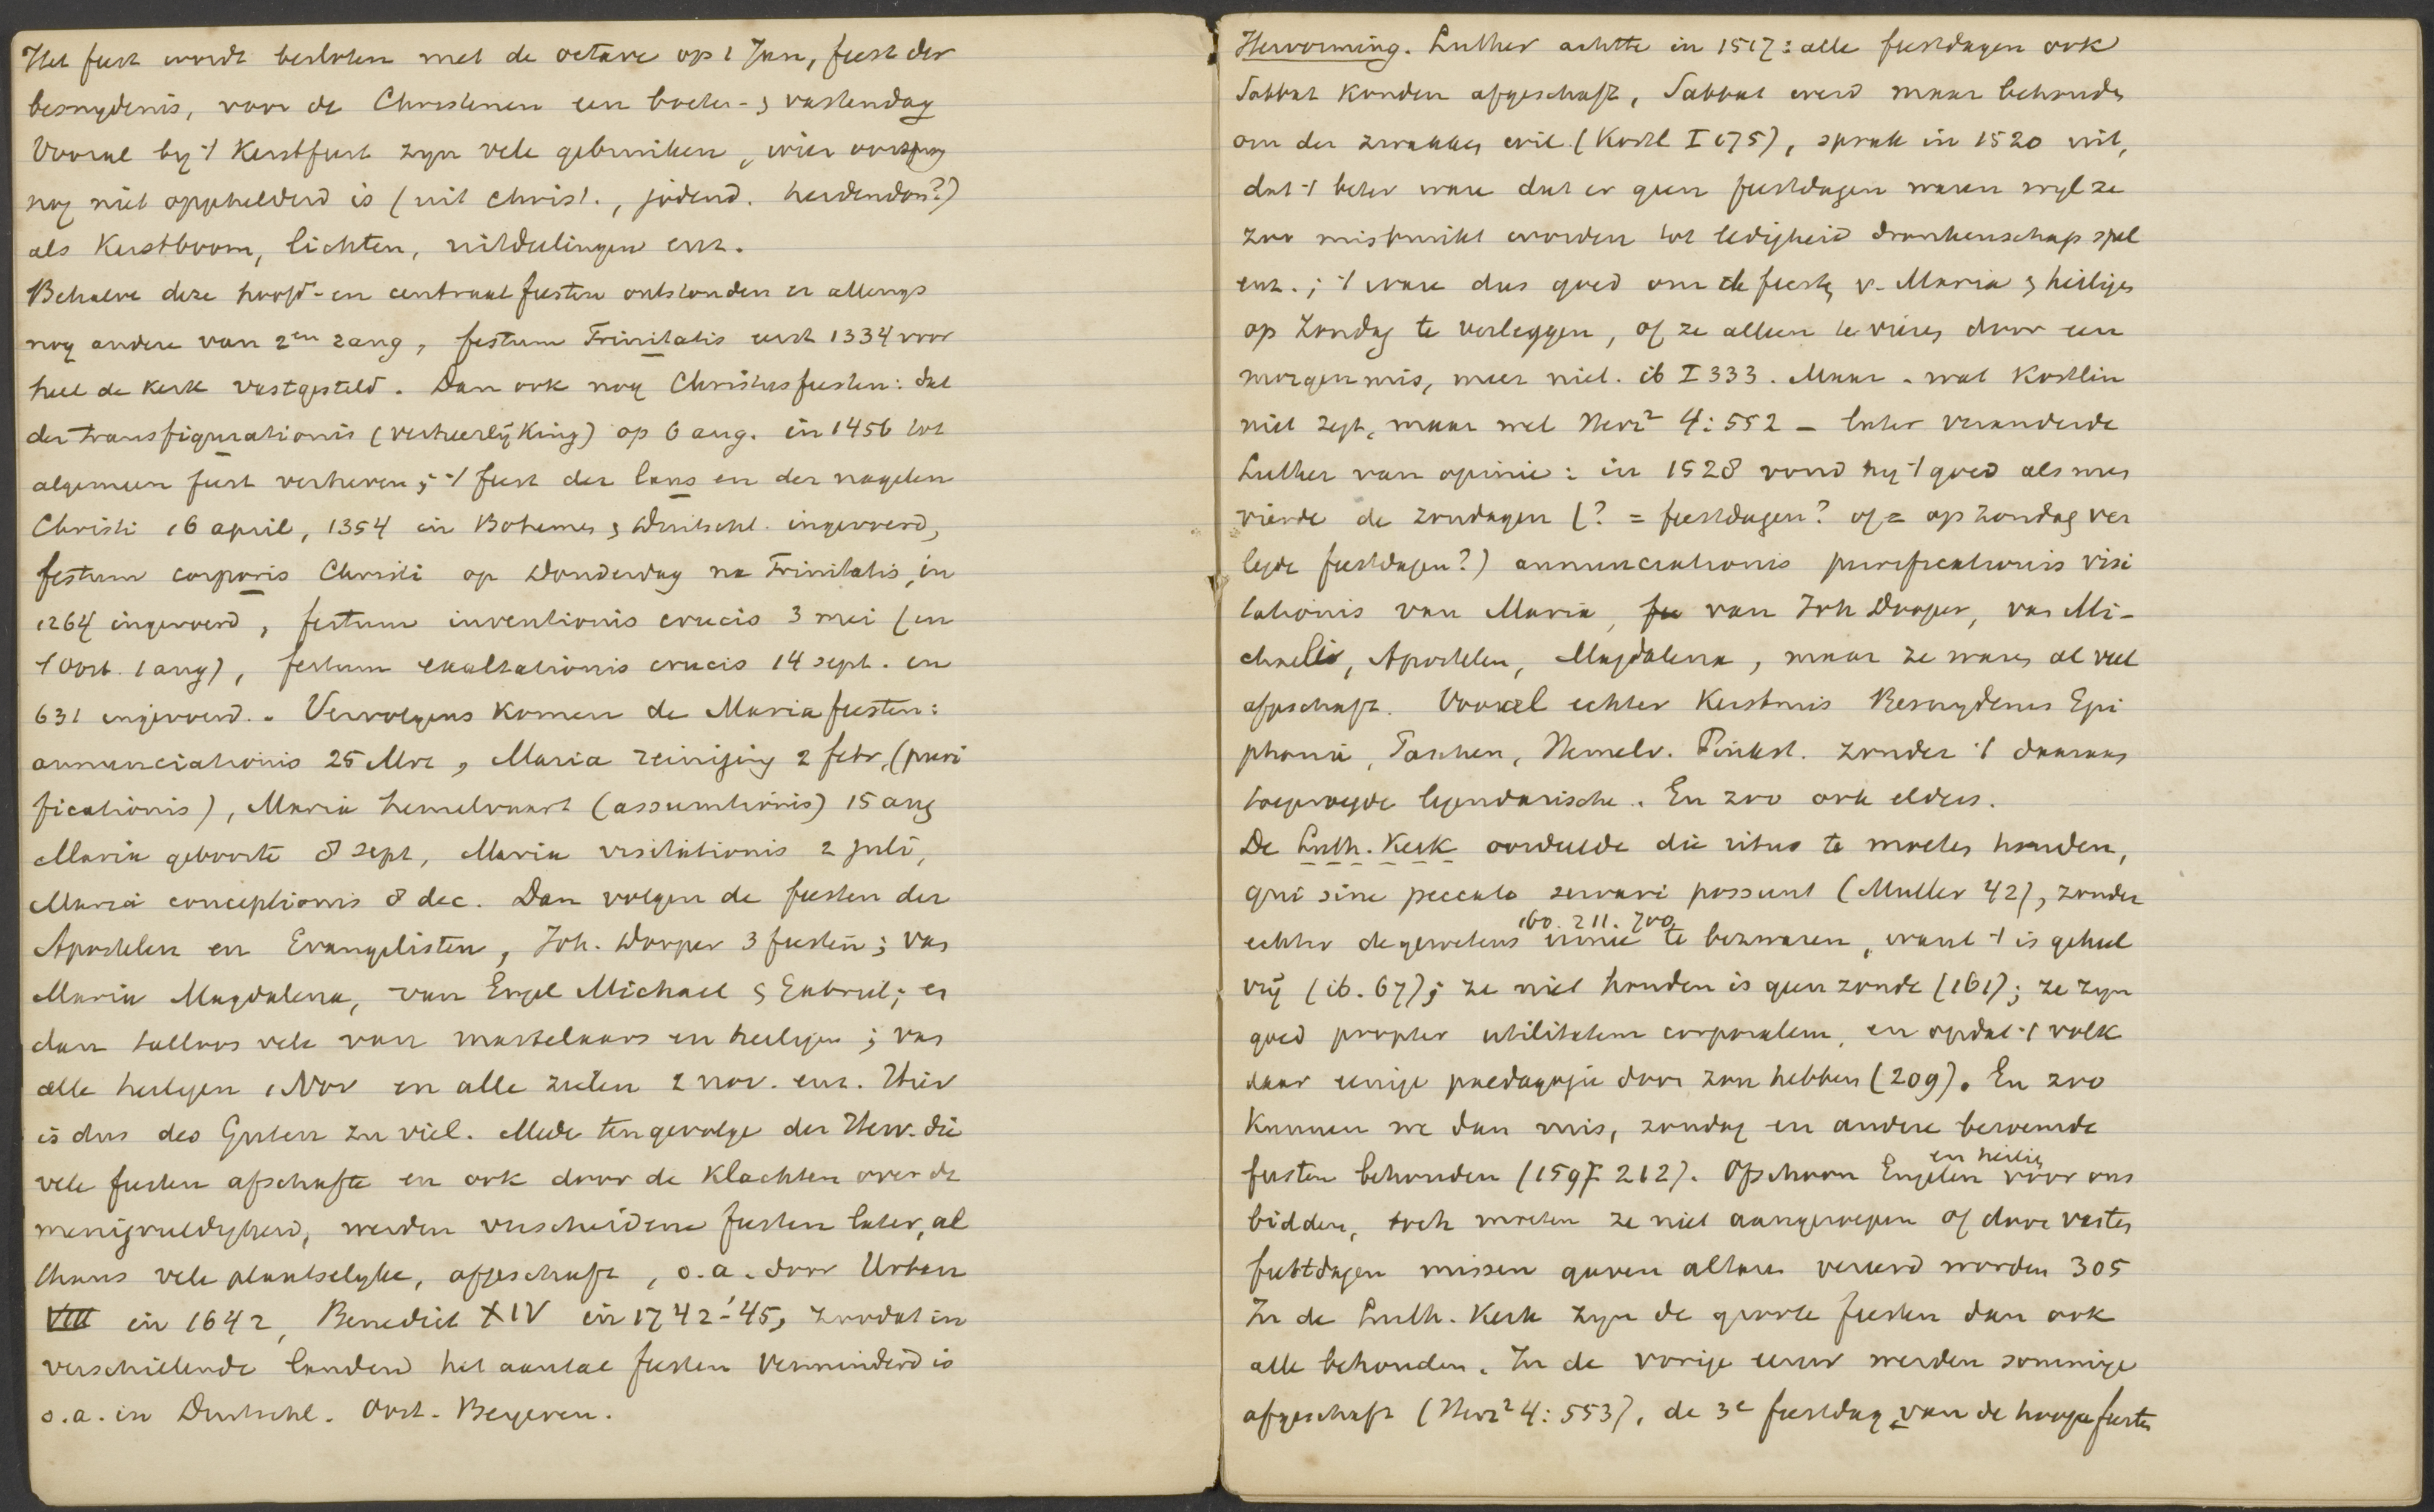 Het feest wordt besloten met de octave op 1 Jan, feest der
besnydenis, voor de Christenen een boete- & vastendag
Vooral by 't Kerstfeest zyn vele gebruiken, wier oorsprong
nog niet opgehelderd is (uit christ., jodend. heidendom?)
als Kerstboom, lichten, uitdeelingen enz.
Behalve deze hoofd- en centraal feesten ontstonden er allengs
nog andere van 2en rang, festum Trinitatis eerst 1334 voor
heel de kerk vastgesteld. Dan ook nog Christusfeesten: dat
der transfigurationis (verheerlijking) op 6 aug. in 1456 tot
algemeen feest verheven; 't feest der lans en der nagelen
Christi 16 april, 1354 in Bohemen & Duitschl. ingevoerd,
festum corporis Christi op Donderdag na Trinitatis, in
1264 ingevoerd, festum inventionis crucis 3 mei (in
't Oost. 1 aug), festum exaltationis crucis 14 sept. in
631 ingevoerd. Vervolgens komen de Mariafeesten:
annunciationis 25 Mrt, Maria reiniging 2 febr, (puri
ficationis), Maria hemelvaart (assumtionis) 15 aug
Maria geboorte 8 sept, Maria visitationis 2 juli,
Maria conceptionis 8 dec. Dan volgen de feesten der
Apostelen en Evangelisten, Joh. Dooper 3 feesten; van
Maria Magdalena, van Engel Michael & Gabriel; en
dan talloos vele van martelaars en heiligen; van
alle heiligen 1 Nov en alle zielen 2 nov. enz. Hier
is dus des Guten zu viel. Mede tengevolge der Herv. die
vele feesten afschafte en ook door de klachten over de
menigvuldigheid, werden verscheidene feesten later, al
thans vele plaatselyke, afgeschaft, o.a. door Urban
VIII in 1642, Benedict XIV in 1742-'45, zoodat in
verschillende landen het aantal feesten verminderd is
o.a. in Duitschl. Oost. Beyeren.
Hervorming. Luther achtte in 1517: alle feestdagen ook
Sabbat konden afgeschaft, Sabbat werd maar behouden
om der zwakken wil (Kostl I 175), sprak in 1520 uit,
dat 't beter ware dat er geen feestdagen waren wyl ze
zoo misbruikt worden tot ledigheid dronkenschap spel
enz.; 't ware dus goed om de feesten v. Maria & heiligen
op Zondag te verleggen, of ze alleen te vieren door een
morgenmis, meer niet. ib I 333. Maar - wat Kostlin
niet zegt, maar wel Herz² 4:552 - later veranderde
Luther van opinie: in 1528 vond hy 't goed als men
vierde de zondagen (? = feestdagen? of = op zondag ver
legde feestdagen?) annunciationis purificationis visi
tationis van Maria, van Joh Dooper, van Mi-
chaelis, Apostelen, Magdalena, maar ze waren al veel
afgeschaft. Vooral echter Kerstmis Besnydenis Epi
phanie, Paschen, Hemelv. Pinkst. zonder 't daaraan
toegevoegde legendarische. En zoo ook elders.
De Luth. Kerk oordeelde die ritus te moeten houden,
qui sine peccato servari possunt (Muller 42), zonder
160. 211. 700
echter de gewetens te bezwaren, want 't is geheel
vrij (ib. 67); ze niet houden is geen zonde (161); ze zyn
goed propter utilitatem corporalem, en opdat 't volk
daar eenige paedagogie door zou hebben (209). En zoo
kunnen we dan mis, zondag en andere beroemde
en heilig
feesten behouden (159 212). Ofschoon Engelen voor ons
bidden, toch moeten ze niet aangeroepen of door vasten
feestdagen missen gaven altaren vereerd worden 305
In de Luth. Kerk zyn de groote feesten dan ook
alle behouden. In de vorige eeuw werden sommige
afgeschaft (Herz² 4:553), de 3e feestdag van de hooge feesten